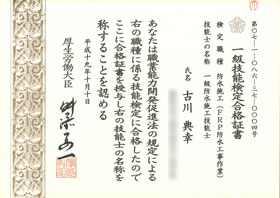 第〇七-一-〇八六-三七-〇〇〇四号
一級技能検定合格証書
検定職種 防水施工(FRP防水工事作業)
技能士の名称 一級防水施工技能士
氏名 古川 典幸
あなたは職業能力開発促進法の規定による
右の職種に係る技能検定に合格したので
ここに合格証書を授与し右の技能士の名称を
称することを認める
平成十九年十月十日
厚生労働大臣 舛添要一